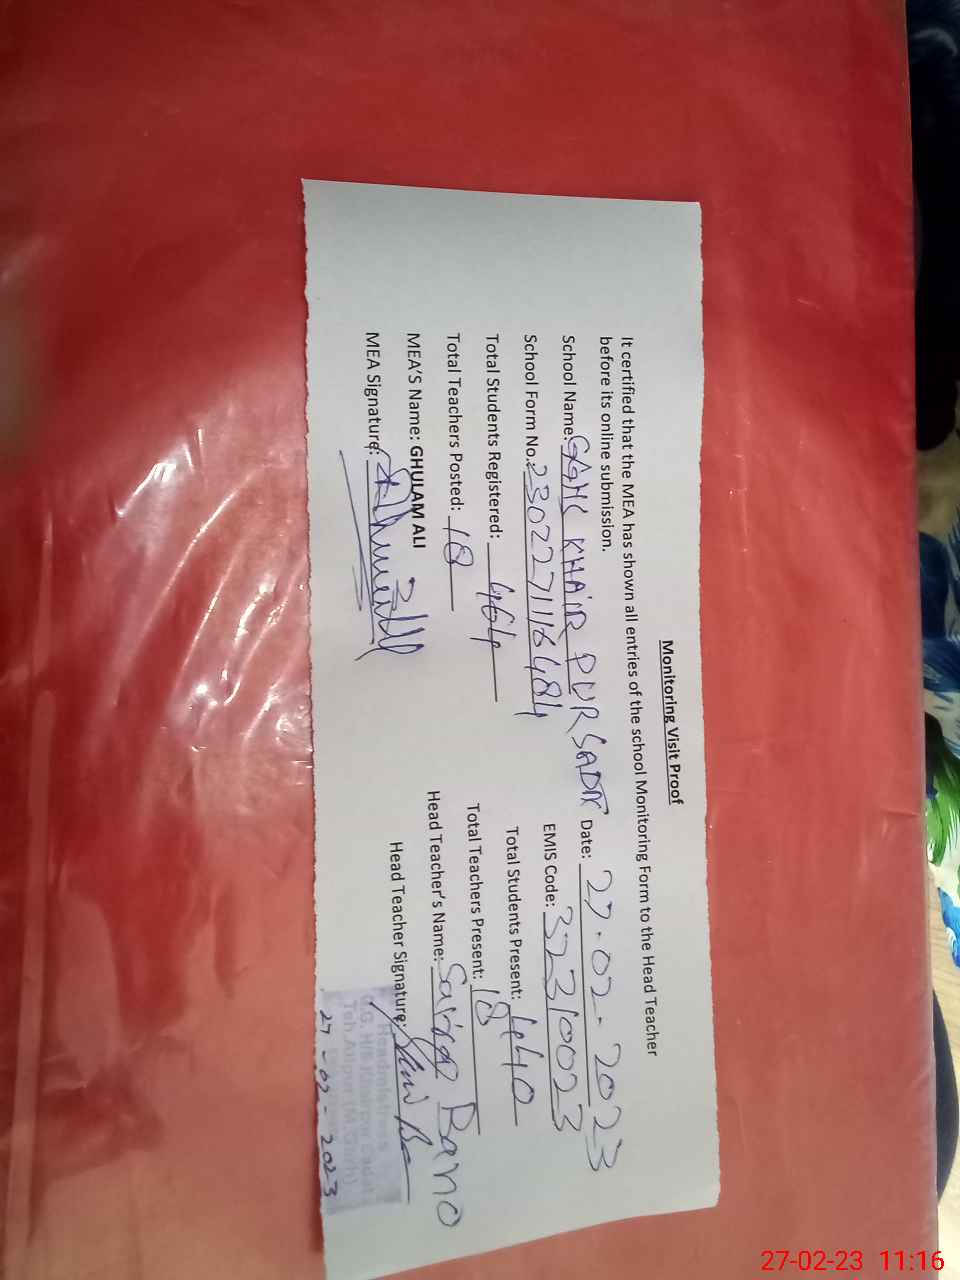 Monitoring Visit Proof
It certified that the MEA has shown all entries of the school Monitoring Form to the Head Teacher
before its online submission.
School Name: GGHS KHAIR PUR SADAT Date: 27-02-2023
School Form No.: 2302271116484 EMIS Code: 32310023
Total Students Registered: 464 Total Students Present: 440
Total Teachers Posted: 18 Total Teachers Present: 18
MEA'S Name: GHULAM ALI Head Teacher's Name: Bano
MEA Signature: Head Teacher Signature:
Headmistress
G.G. H/S Khairpur Sadat
Teh. Alipur (M.Garh)
27-02-2023
27-02-23 11:16